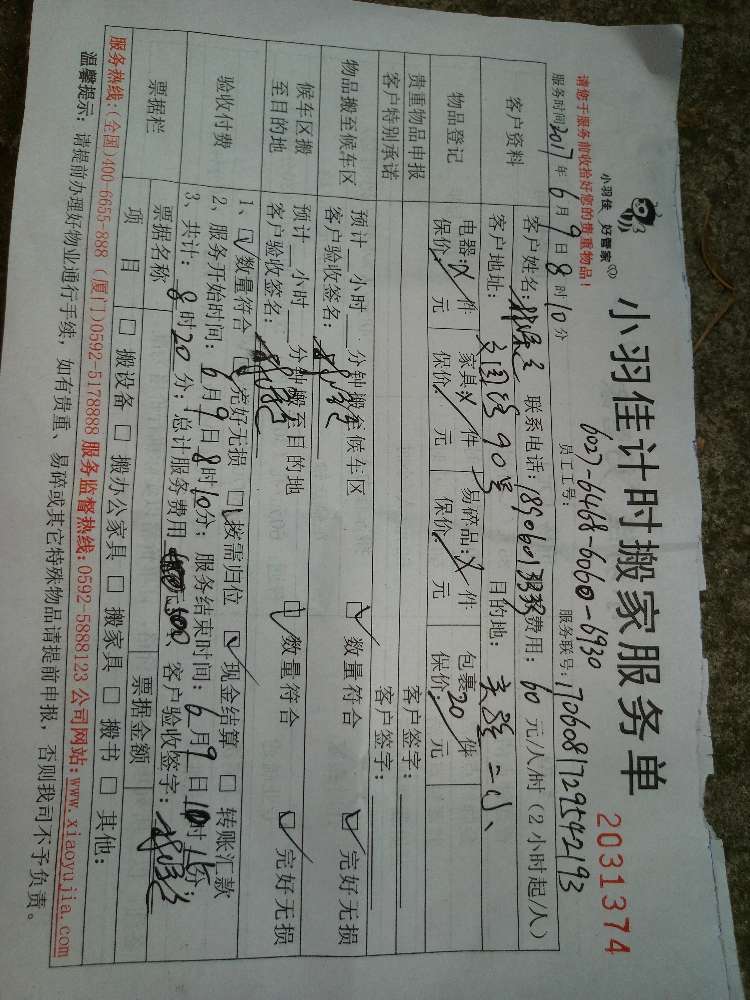 小羽佳 好管家
小羽佳计时搬家服务单
2031374
请您于服务前收拾好您的贵重物品!
6027-6468-6060-6930
服务时间2017年6月9日8时10分
员工工号:
服务联号:1706081729542193
客户资料
客户姓名:
联系电话:
费用:60元/人/时(2小时起/人)
客户地址:
90号
目的地:
物品登记
电器:件 家具:件 易碎品:件 包裹20件
保价 元 保价 元 保价 元 保价 元
贵重物品申报
客户签字:
客户特别承诺
客户签字:
物品搬至候车区
预计 小时 分钟搬至候车区 数量符合 完好无损
客户验收签名:
候车区搬至目的地
预计 小时 分钟搬至目的地 数量符合 完好无损
客户验收签名:
验收付费
1、数量符合 完好无损 按需归位 现金结算 转账汇款
2、服务开始时间:6月9日8时10分;服务结束时间:6月9日
3、共计:8时20分;总计服务费用 客户验收签字:
票据栏
票据名称 票据金额
项目 搬设备 搬办公家具 搬家具 搬书 其他:
服务热线:(全国)400-6655-888 (厦门)0592-5178888 服务监督热线:0592-5888123 公司网站:www.xiaoyujia.com
温馨提示:请提前办理好物业通行手续,如有贵重、易碎或其它特殊物品请提前申报,否则我司不予负责。